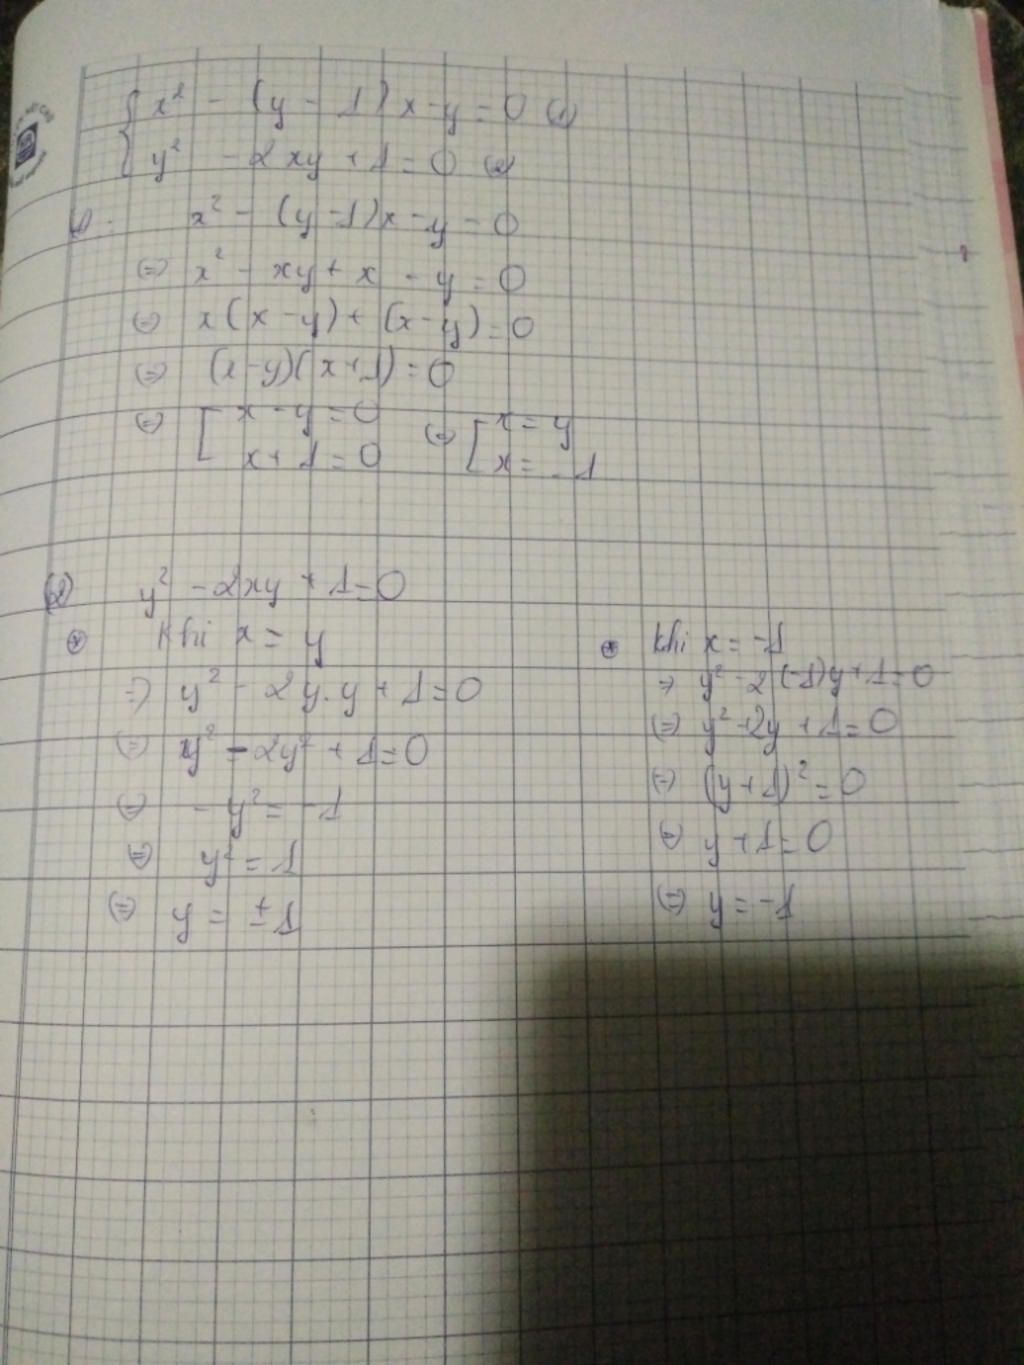 { x² - (y - 1)x - y = 0 (1)
{ y² - 2xy + 1 = 0 (2)
(1) x² - (y - 1)x - y = 0
(=) x² - xy + x - y = 0
(=) x(x - y) + (x - y) = 0
(=) (x - y)(x + 1) = 0
(=) [ x - y = 0 (=) [ x = y
[ x + 1 = 0 [ x = -1
(2) y² - 2xy + 1 = 0
* Khi x = y
=) y² - 2y.y + 1 = 0
(=) y² - 2y² + 1 = 0
(=) - y² = - 1
(=) y² = 1
(=) y = ± 1
* Khi x = -1
=) y² - 2(-1)y + 1 = 0
(=) y² + 2y + 1 = 0
(=) (y + 1)² = 0
(=) y + 1 = 0
(=) y = -1